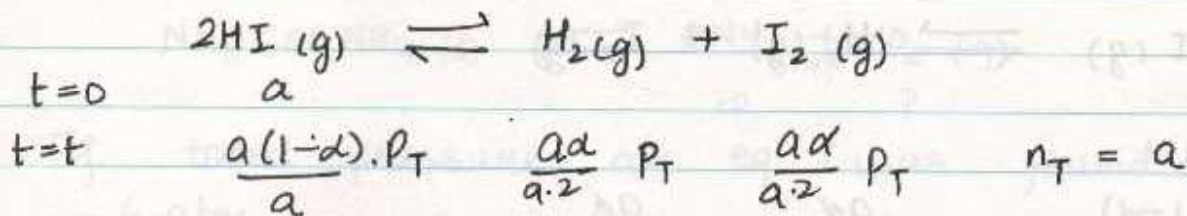 2HI (g) ⇌ H₂(g) + I₂ (g)
t=0 a
t=t a(1-α).P_T/a aα/a·2 P_T aα/a·2 P_T n_T = a